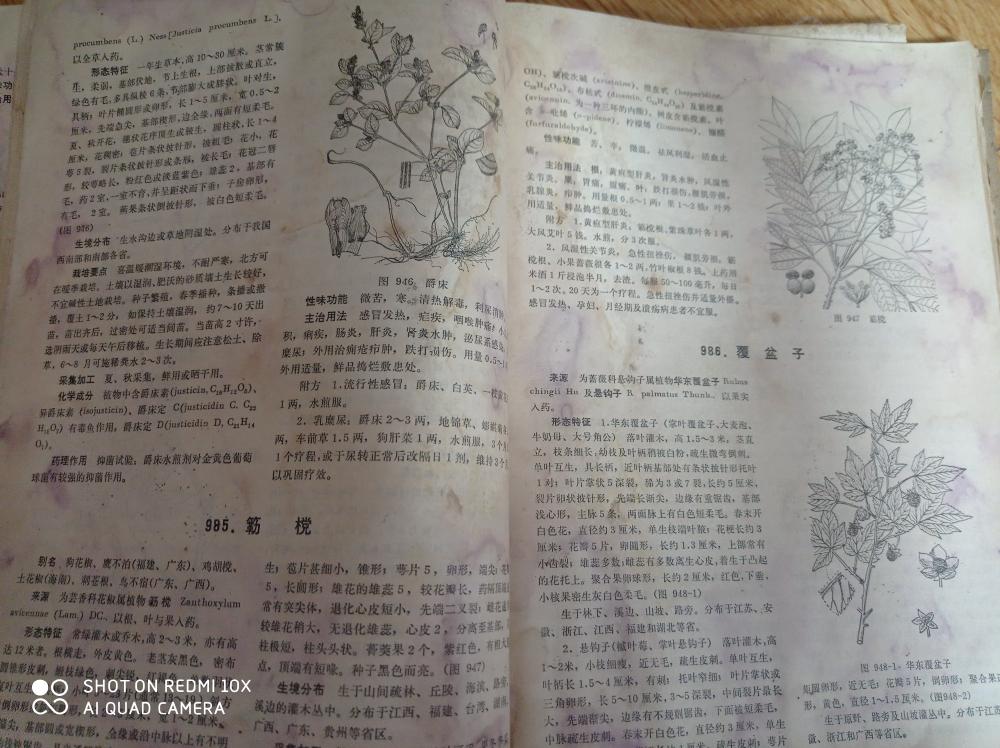 procumbens (L.) Ness[Justicia procumbens L.],
以全草入药。
形态特征 一年生草本,高10～30厘米。茎常簇
生,柔弱,基部伏地,节上生根,上部披散或直立,
绿色有毛,多具纵棱6条,节部膨大成膝状。叶对生,
具柄;叶片椭圆形或卵形,长1～5厘米,宽0.5～2
厘米,先端急尖,基部楔形,边全缘,两面有短柔毛。
夏、秋开花,穗状花序顶生或腋生,圆柱状,长1～4
厘米;花稠密;苞片条状披针形,被粗毛;花小,花
萼5裂,裂片条状披针形或条形,被长毛;花冠二唇
形,较萼略长,粉红色或淡蓝紫色;雄蕊2,基部有
毛,药2室,一室不育,并呈距状而下垂;子房卵形,
有毛,2室。蒴果条状倒披针形,被白色短柔毛。
(图946)
生境分布 生水沟边或草地阴湿处。分布于我国
西南部和南部各省。
栽培要点 喜温暖潮湿环境,不耐严寒,北方可
在暖季栽培。土壤以湿润、肥沃的砂质壤土生长较好,
不宜碱性土地栽培。种子繁殖,春季播种,条播或撒
播,覆土1～2分,如保持土壤湿润,约7～10天出
苗,苗出齐后,过密处可适当间苗。当苗高2寸许,
选阴雨天或每天午后移植。生长期间应注意松土、除
草,6～8月可施稀粪水2～3次。
采集加工 夏、秋采集,鲜用或晒干用。
化学成分 植物中含爵床素(justicin,
异爵床素(isojusticin)、爵床定C(justicidin C.
有毒鱼作用,爵床定D(justicidin D,
药理作用 抑菌试验:爵床水煎剂对金黄色葡萄
球菌有较强的抑菌作用。
图946 爵床
性味功能 微苦,寒。清热解毒,利尿消肿
主治用法 感冒发热,疟疾,咽喉肿痛,小
积,痢疾,肠炎,肝炎,肾炎水肿,泌尿系感染
糜尿;外用治痈疮疖肿,跌打损伤。用量0.5～1
外用适量,鲜品捣烂敷患处。
附方 1.流行性感冒:爵床、白英、一枝黄花
1两,水煎服。
2.乳糜尿:爵床2～3两,地锦草、
两,车前草1.5两,狗肝菜1两,水煎服,3个月
1个疗程,或于尿转正常后改隔日1剂,维持3个月
以巩固疗效。
985.簕 欓
别名 狗花椒、鹰不泊(福建、广东)、鸡胡欓、
土花椒(海南)、刺苍根、鸟不宿(广东、广西)。
来源 为芸香科花椒属植物簕欓 Zanthoxylum
avicennae (Lam.) DC.,以根、叶与果入药。
形态特征 常绿灌木或乔木,高2～3米,亦有高
达12米者。根横走,外皮黄色。老茎灰黑色,密布
圆锥形皮刺,嫩枝绿色,
端尖,基部圆或宽楔形,全缘或沿中脉以上有不明
生;苞片甚细小,锥形;萼片5,卵形,端尖;花
5,长圆形;雄花的雄蕊5,较花瓣长,药隔
常有突尖体,退化心皮短小,先端二叉裂;雌花
较雄花稍大,无退化雄蕊,心皮2,分离至基部,
柱极短,柱头头状。蓇葖果2个,紫红色,有粗大
点,顶端有短喙。种子黑色而亮。(图947)
生境分布 生于山间疏林、丘陵、海滨、路旁
溪边的灌木丛中。分布于江西、福建、台湾、湖南
广西、广东、贵州等省区。
OH)、簕欓次碱(avicinine)、橙皮甙(hesperidine,
布枯甙(diosmin, 及簕欓素
(avicennin,为一种三环的内酯)。树皮含簕欓素。叶
含α-吡烯(α-pidene)、柠檬烯(limonene)、糠醛
(furfuraldehyde)。
性味功能 苦,辛,微温。祛风利湿,活血止
痛。
主治用法 根:黄疸型肝炎,肾炎水肿,风湿性
关节炎。果:胃痛,腹痛。叶:跌打损伤,腰肌劳损,
乳腺炎,疖肿。用量根0.5～1两;果1～2钱;叶外
用适量,鲜品捣烂敷患处。
附方 1.黄疸型肝炎:簕欓根、紫珠草叶各1两,
大风艾叶5钱。水煎,分3次服。
2.风湿性关节炎,急性扭挫伤,腰肌劳损:簕
欓根、小果蔷薇根各1～2两,竹叶椒根8钱。上药用
米酒1斤浸泡半月,去渣。每服50～100毫升,每日
1～2次。20天为一个疗程。急性扭挫伤并适量外擦。
感冒发热、孕妇、月经期及溃疡病患者不宜服。
图947 簕欓
986.覆 盆 子
来源 为蔷薇科悬钩子属植物华东覆盆子 Rubus
chingii Hu 及悬钩子 R. palmatus Thunb.,以果实
入药。
形态特征 1.华东覆盆子(掌叶覆盆子、大麦泡、
牛奶母、大号角公) 落叶灌木,高1.5～3米,茎直
立,枝条细长,幼枝及叶柄稍被白粉,疏生微弯倒刺。
单叶互生,具长柄,近叶柄基部处有条状披针形托叶
1对;叶片掌状5深裂,稀为3或7裂,长约5厘米,
裂片卵状披针形,先端长渐尖,边缘有重锯齿,基部
浅心形,主脉5条,两面脉上有白色短柔毛。春末开
白色花,直径约3厘米,单生枝端叶腋;花梗长约3
厘米;花瓣5片,卵圆形,长约1.3厘米,上部常有
小齿裂;雄蕊多数;雌蕊有多数离生心皮,着生于凸起
的花托上。聚合果卵球形,长约2厘米,红色,下垂,
小核果密生灰白色柔毛。(图948-1)
生于林下、溪边、山坡、路旁。分布于江苏、安
徽、浙江、江西、福建和湖北等省。
2.悬钩子(槭叶莓、掌叶悬钩子) 落叶灌木,高
1～2米,小枝细瘦,近无毛,疏生皮刺。单叶互生,
叶柄长1.5～4厘米,有刺;托叶窄细;叶片掌状或
三角卵形,长5～10厘米,3～5深裂,中间裂片最长
大,先端渐尖,边缘有不规则锯齿,下面被短柔毛,
中脉疏生皮刺。春末开白色花,直径约3厘米,单生
图948-1.华东覆盆子
萼圆卵形,近无毛;花瓣5片,倒卵形;聚合果近
形,黄色,直径1～1.5厘米。(图948-2)
生于原野、路旁及山坡灌丛中。分布于江苏
浙江和广西等省区。
SHOT ON REDMI 10X
AI QUAD CAMERA